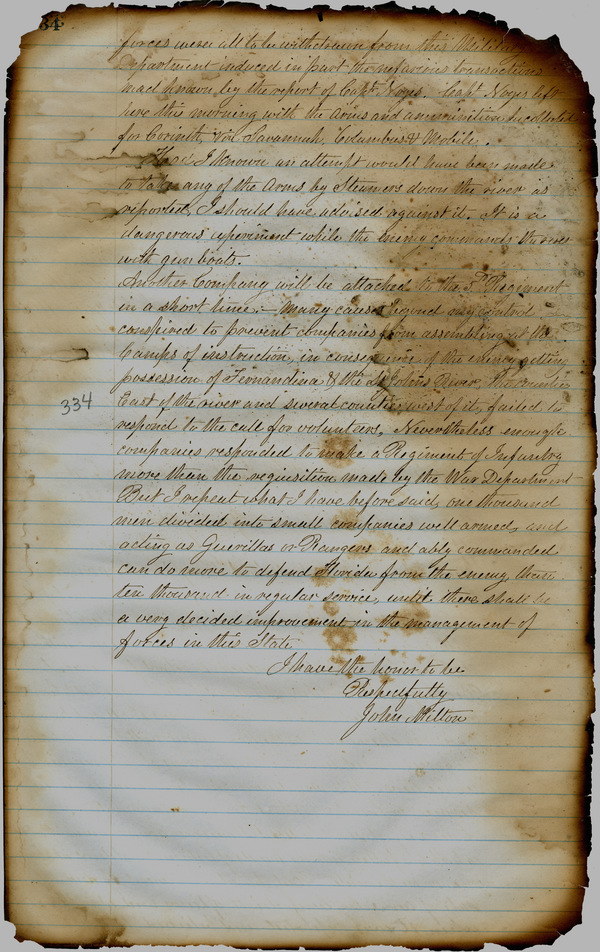 34
forces were all to be withdrawn from this Military
Department induced in part the nefarious transactions
mad known by the report of Capt. Noys. Capt. Noys left
here this morning with the Arms and ammunition
for Corinth, Via Savannah, Columbus & Mobile.
Had I known an attempt would have been made
to take any of the Arms by Steamers down the river as
reported, I should have advised against it. It is a
dangerous experiment while the enemy commands the river
with gun boats.
Another Company will be attached to the 5th Regiment
in a short time. — Many causes beyond my control
conspired to prevent companies from assembling at the
Camps of instruction, in consequence of the enemy getting
possession of Fernandina & the St Johns River, the counties
334
East of the river and several counties west of it, failed to
respond to the call for volunteers, Nevertheless enough
companies responded to make a Regiment of Infantry
more than the requisition made by the War Department
But I repeat what I have before said, one thousand
men divided into small companies well armed, and
acting as Guerillas or Rangers and ably commanded
can do more to defend Florida from the enemy than
ten thousand in regular service, until there shall be
a very decided improvement in the management of
forces in this State
I have the honor to be
Respectfully
John Milton